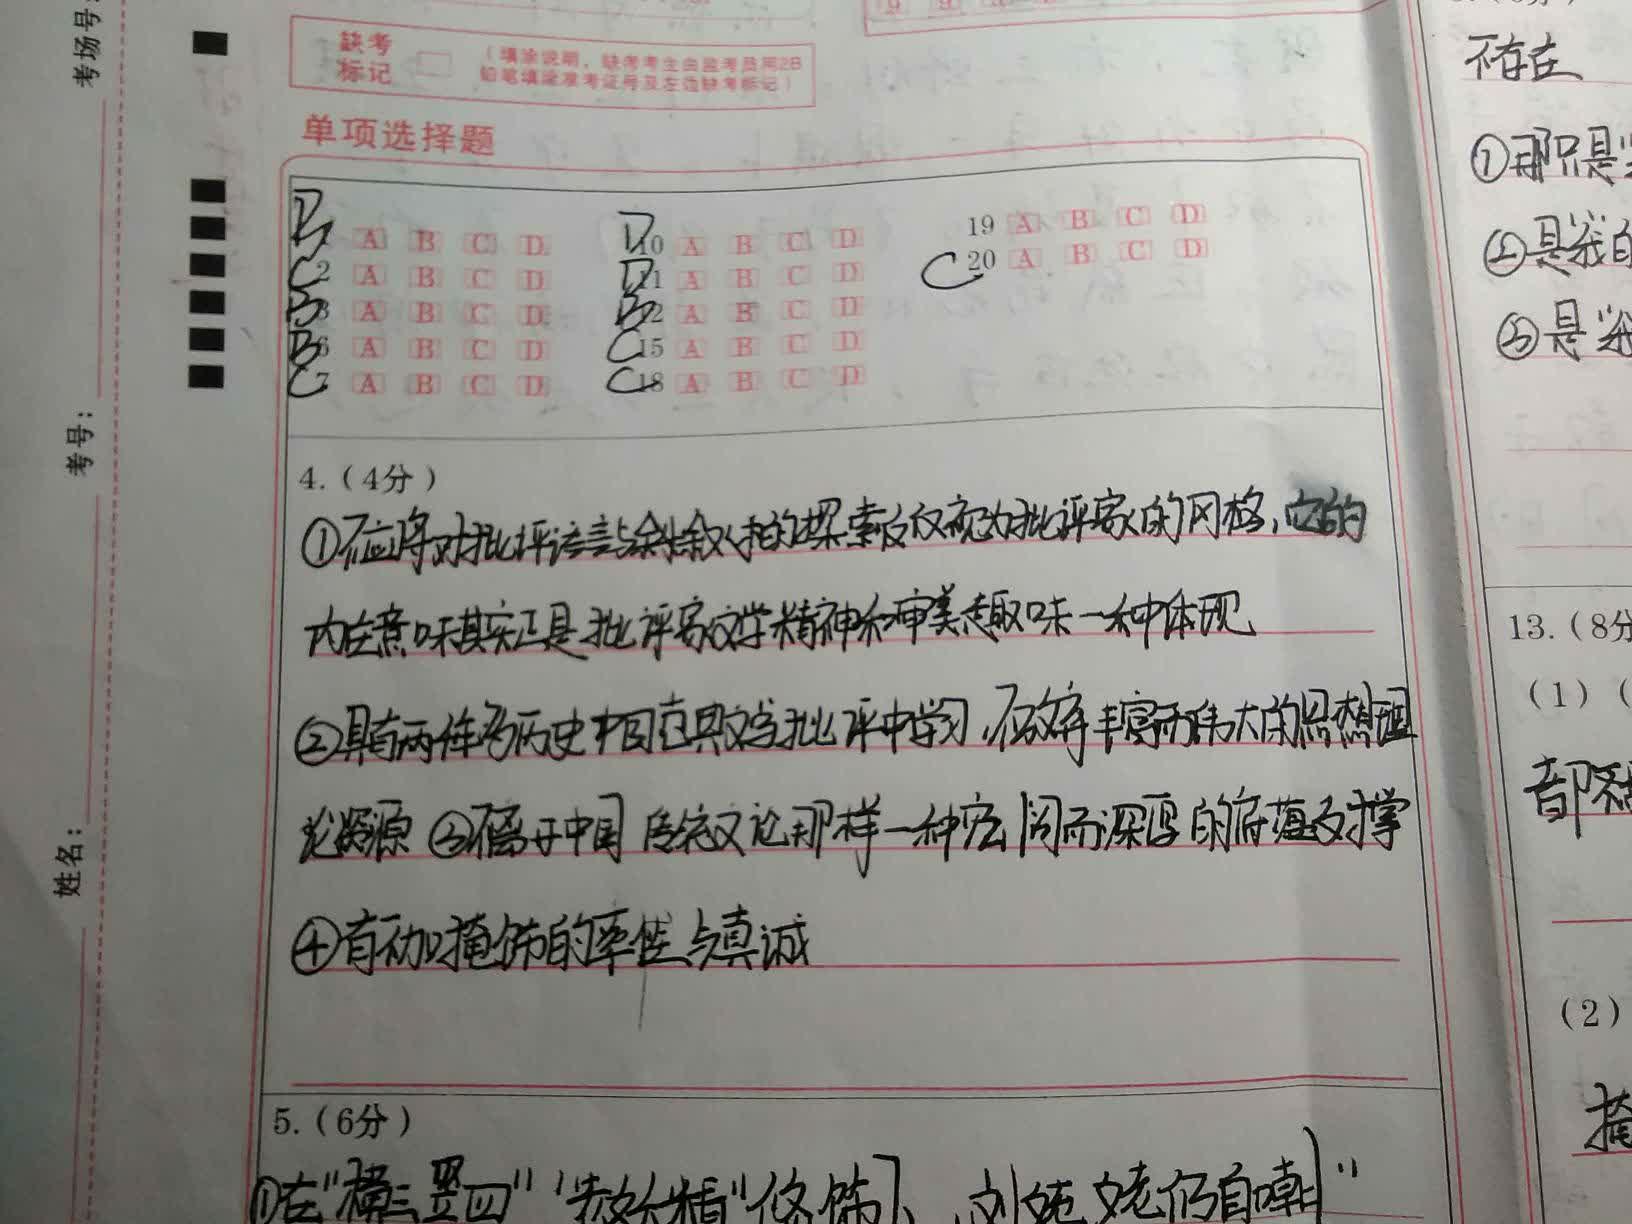 考场号:
考号:
姓名:
缺考
标记
(填涂说明:缺考考生由监考员用2B
铅笔填涂准考证号及左边缺考标记)
单项选择题
D
1 A B C D
C 2 A B C D
B 3 A B C D
B 6 A B C D
C 7 A B C D
D 10 A B C D
D 11 A B C D
B 12 A B C D
C 15 A B C D
C 18 A B C D
19 A B C D
C 20 A B C D
4.(4分)
①不应将对批评语言与叙述的探索仅仅视为批评家的风格,它的
内在意味其实正是批评家文学精神和审美趣味一种体现
②具有两件与历史中国古典文学批评中学习,不放弃丰富而伟大的思想理
论资源 ③不离于中国传统文论那样一种宏阔而深厚的底蕴支撑
④有不加掩饰的率性与真诚
5.(6分)
①在"横三竖四""老妖精"修饰下、刘姥姥仍自嘲"
不存在
①那只是
②是我的
③是
13.(8分
(1)(
都不
(2)
掩